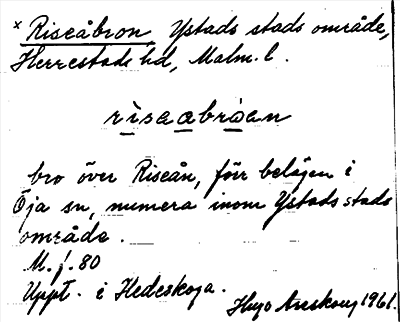 x Riseåbron, Ystads stads område,
Herrestads hd, Malm. l.
risaabråen
bro över Riseån, förr belägen i
Öja sn, numera inom Ystads stads
område.
M. f. 80
Uppt. i Hedeskoga.
Hugo Areskoug 1961.